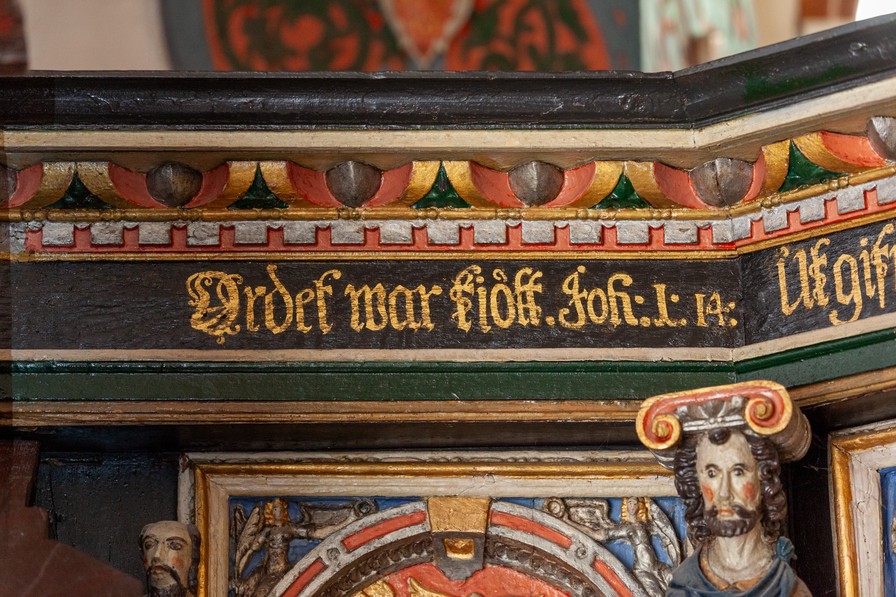 Ordet war kiött. Joh: 1: 14: